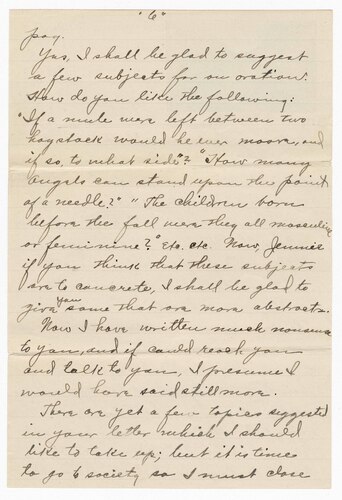 "6"
pay.
Yes, I shall be glad to suggest
a few subjects for an oration.
How do you like the following:
"If a mule were left between two
haystack would he ever moove, and
if so, to what side"? "How many
angels can stand upon the point
of a needle?" "The children born
before the fall were they all masculine
or feminine?" Etc. etc. Now, Jennie
if you think that these subjects
are to concrete, I shall be glad to
give you some that are more abstract.
Now I have written much nonsense
to you, and if could reach you
and talk to you, I presume I
would have said still more.
There are yet a few topics suggested
in your letter which I should
like to take up; but it is time
to go to society so I must close